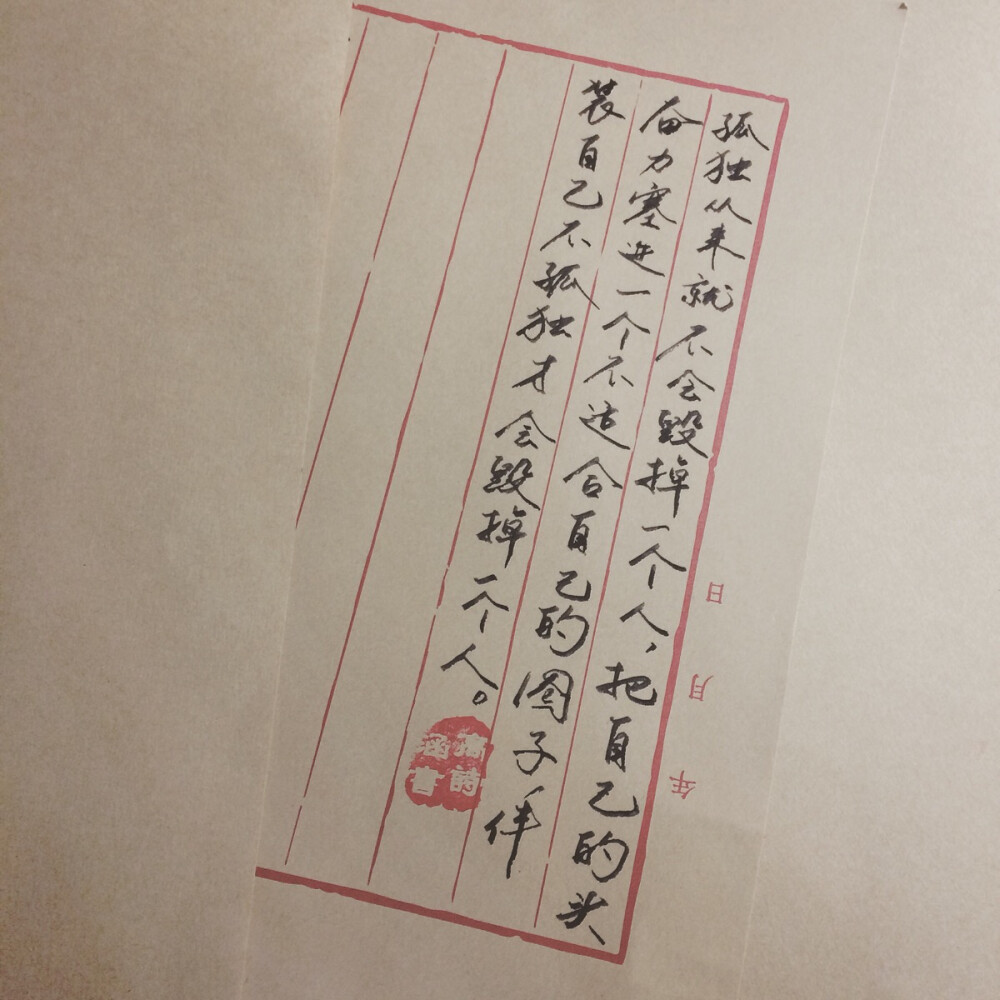 孤独从来就不会毁掉一个人，把自己的头
奋力塞进一个不适合自己的圈子佯
装自己不孤独才会毁掉一个人。
年
月
日